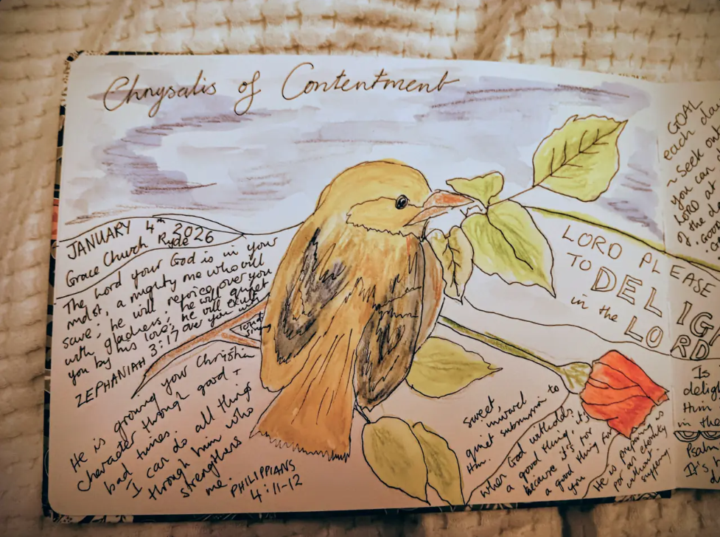 Chrysalis of Contentment
JANUARY 4th 2026
Grace Church Ryde
The Lord your God is in your
midst, a mighty one who will
save; he will rejoice over you
with gladness; he will quiet
you by his love; he will exult
ZEPHANIAH 3:17 over you with
singing
He is growing your Christian
character through good +
bad times.
I can do all things
through him who
strengthens
me.
PHILIPPIANS
4:11-12
LORD PLEASE
TO DELIG
in the LORD
sweet
inward
quiet submission to
Him.
when God witholds
a good thing, it's
because it's not
a good thing for
you
He is preparing us
for an eternity
without
suffering.
GOAL
each da
Seek ou
you can
LORD at
of the d
Is
deligh
Him
in the
Psalm
It's